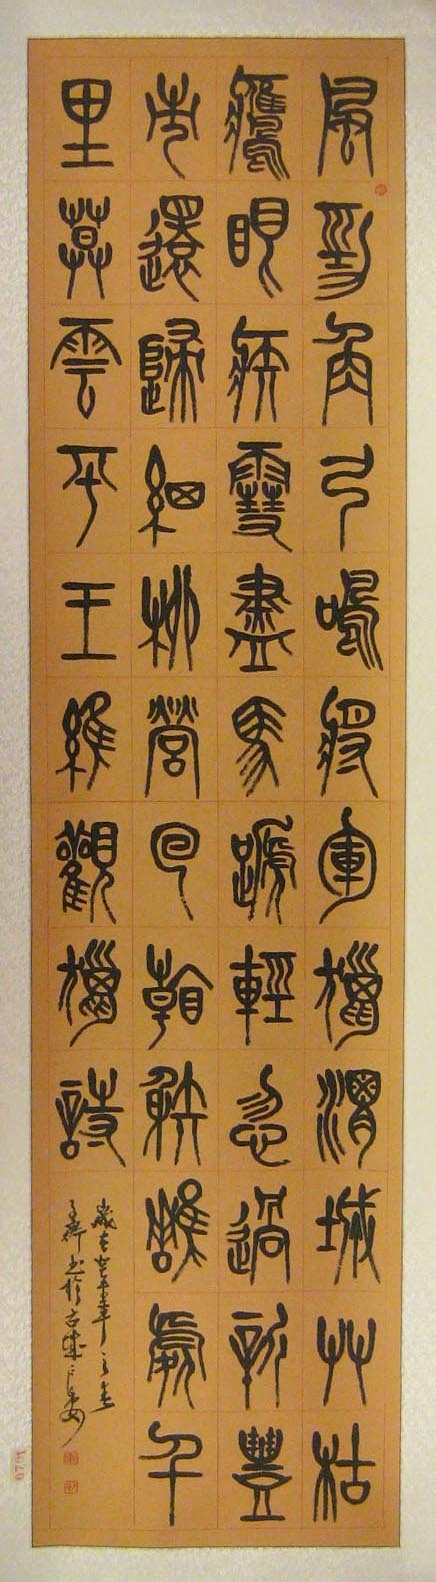 風勁角弓鳴將軍獵渭城艸枯
鷹眼疾雪盡馬蹄輕忽過新豐
市還歸細柳營回看射雕處千
里莫雲平王維觀獵詩
歲在
書於古城長安
0701